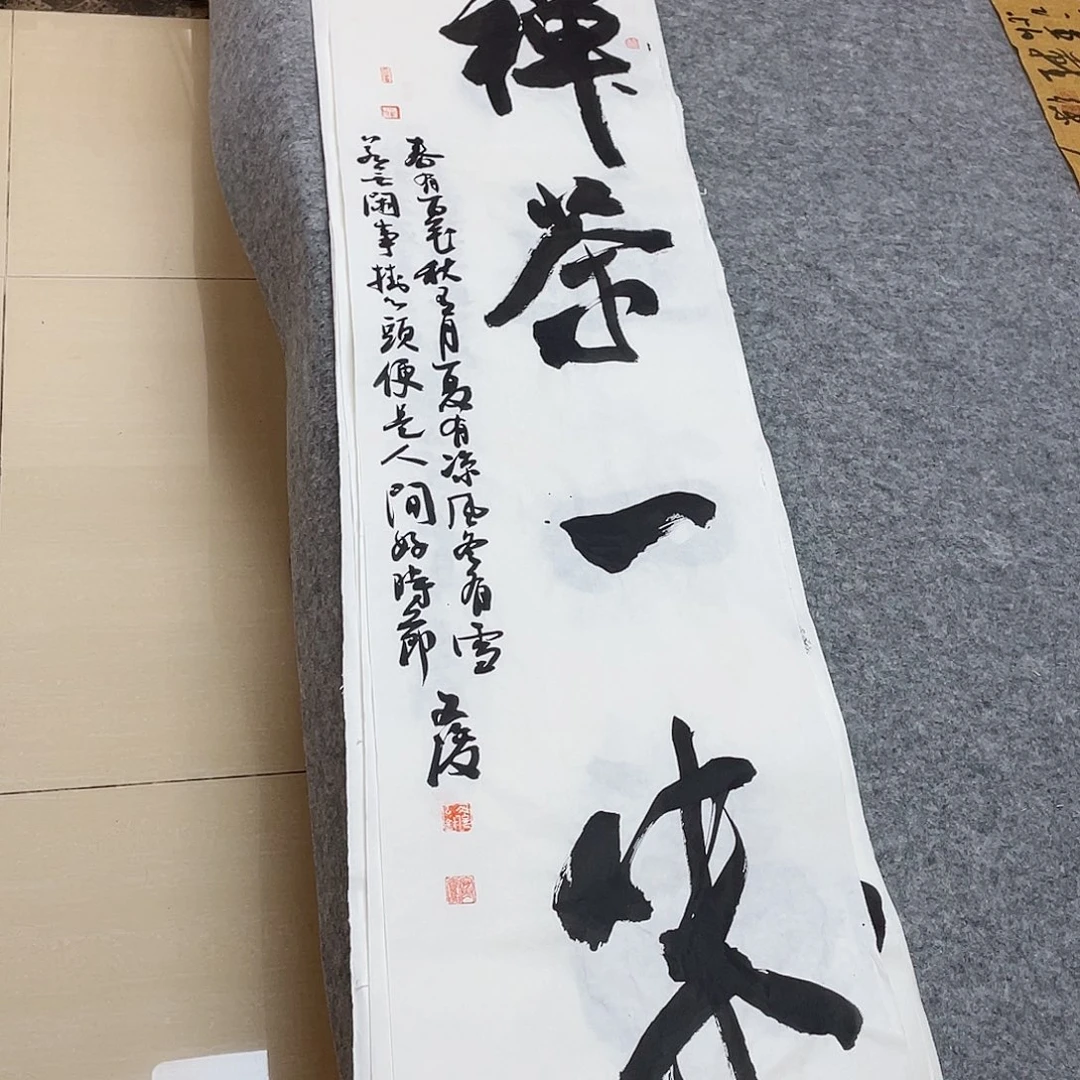 禪茶一味
春有百花秋有月夏有凉风冬有雪
若无闲事掛心頭便是人间好時節